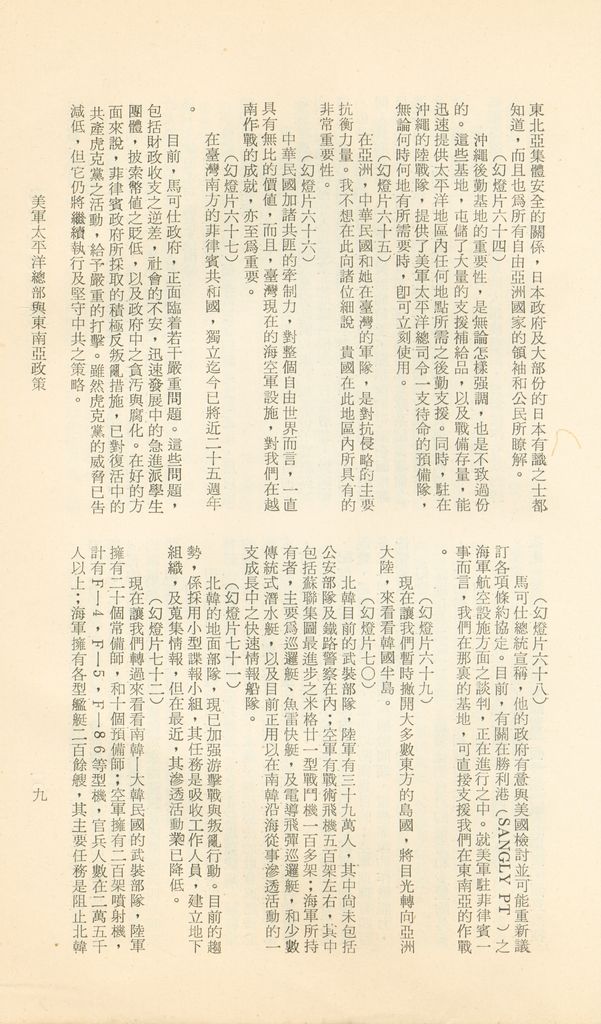 東北亞集體安全的關係，日本政府及大部份的日本有識之士都
知道，而且也爲所有自由亞洲國家的領袖和公民所瞭解。
（幻燈片六十四）
沖繩後勤基地的重要性，是無論怎樣强調，也是不致過份
的。這些基地，屯儲了大量的支援補給品，以及戰備存量，能
迅速提供太平洋地區內任何地點所需之後勤支援。同時，駐在
沖繩的陸戰隊，提供了美軍太平洋總司令一支待命的預備隊，
無論何時何地有所需要時，卽可立刻使用。
（幻燈片六十五）
在亞洲，中華民國和她在臺灣的軍隊，是對抗侵略的主要
抗衡力量。我不想在此向諸位細說　貴國在此地區內所具有的
非常重要性。
（幻燈片六十六）
中華民國加諸共匪的牽制力，對整個自由世界而言，一直
具有無比的價値，而且，臺灣現在的海空軍設施，對我們在越
南作戰的成就，亦至爲重要。
（幻燈片六十七）
在臺灣南方的菲律賓共和國，獨立迄今已將近二十五週年
。
目前，馬可仕政府，正面臨着若干嚴重問題。這些問題，
包括財政收支之逆差，社會的不安，迅速發展中的急進派學生
團體，披索幣值之貶低，以及政府中之貪汚與腐化。在好的方
面來說，菲律賓政府所採取的積極反叛亂措施，已對復活中的
共產虎克黨之活動，給予嚴重的打擊。雖然虎克黨的威脅已告
減低，但它仍將繼續執行及堅守中共之策略。
（幻燈片六十八）
馬可仕總統宣稱，他的政府有意與美國檢討並可能重新議
訂各項條約協定。目前，有關在勝利港（SANGLY PT）之
海軍航空設施方面之談判，正在進行之中。就美軍駐菲律賓一
事而言，我們在那裏的基地，可直接支援我們在東南亞的作戰
。
（幻燈片六十九）
現在讓我們暫時撇開大多數東方的島國，將目光轉向亞洲
大陸，來看看韓國半島。
（幻燈片七〇）
北韓目前的武裝部隊，陸軍有三十九萬人，其中尚未包括
公安部隊及鐵路警察在內；空軍有戰術飛機五百架左右，其中
包括蘇聯集團最進步之米格廿一型戰鬥機一百多架；海軍所持
有者，主要爲巡邏艇、魚雷快艇，及電導飛彈巡邏艇，和少數
傳統式潛水艇，以及目前正用以在南韓沿海從事滲透活動的一
支成長中之快速情報船隊。
（幻燈片七十一）
北韓的地面部隊，現已加强游擊戰與叛亂行動。目前的趨
勢，係採用小型諜報小組，其任務是吸收工作人員，建立地下
組織，及蒐集情報，但在最近，其滲透活動業已降低。
（幻燈片七十二）
現在讓我們轉過來看看南韓—大韓民國的武裝部隊，陸軍
擁有二十個常備師，和十個預備師；空軍擁有二百架噴射機，
計有F—4，F—5，F—86等型機，官兵人數在二萬五千
人以上；海軍擁有各型艦艇二百餘艘，其主要任務是阻止北韓
美軍太平洋總部與東南亞政策
九